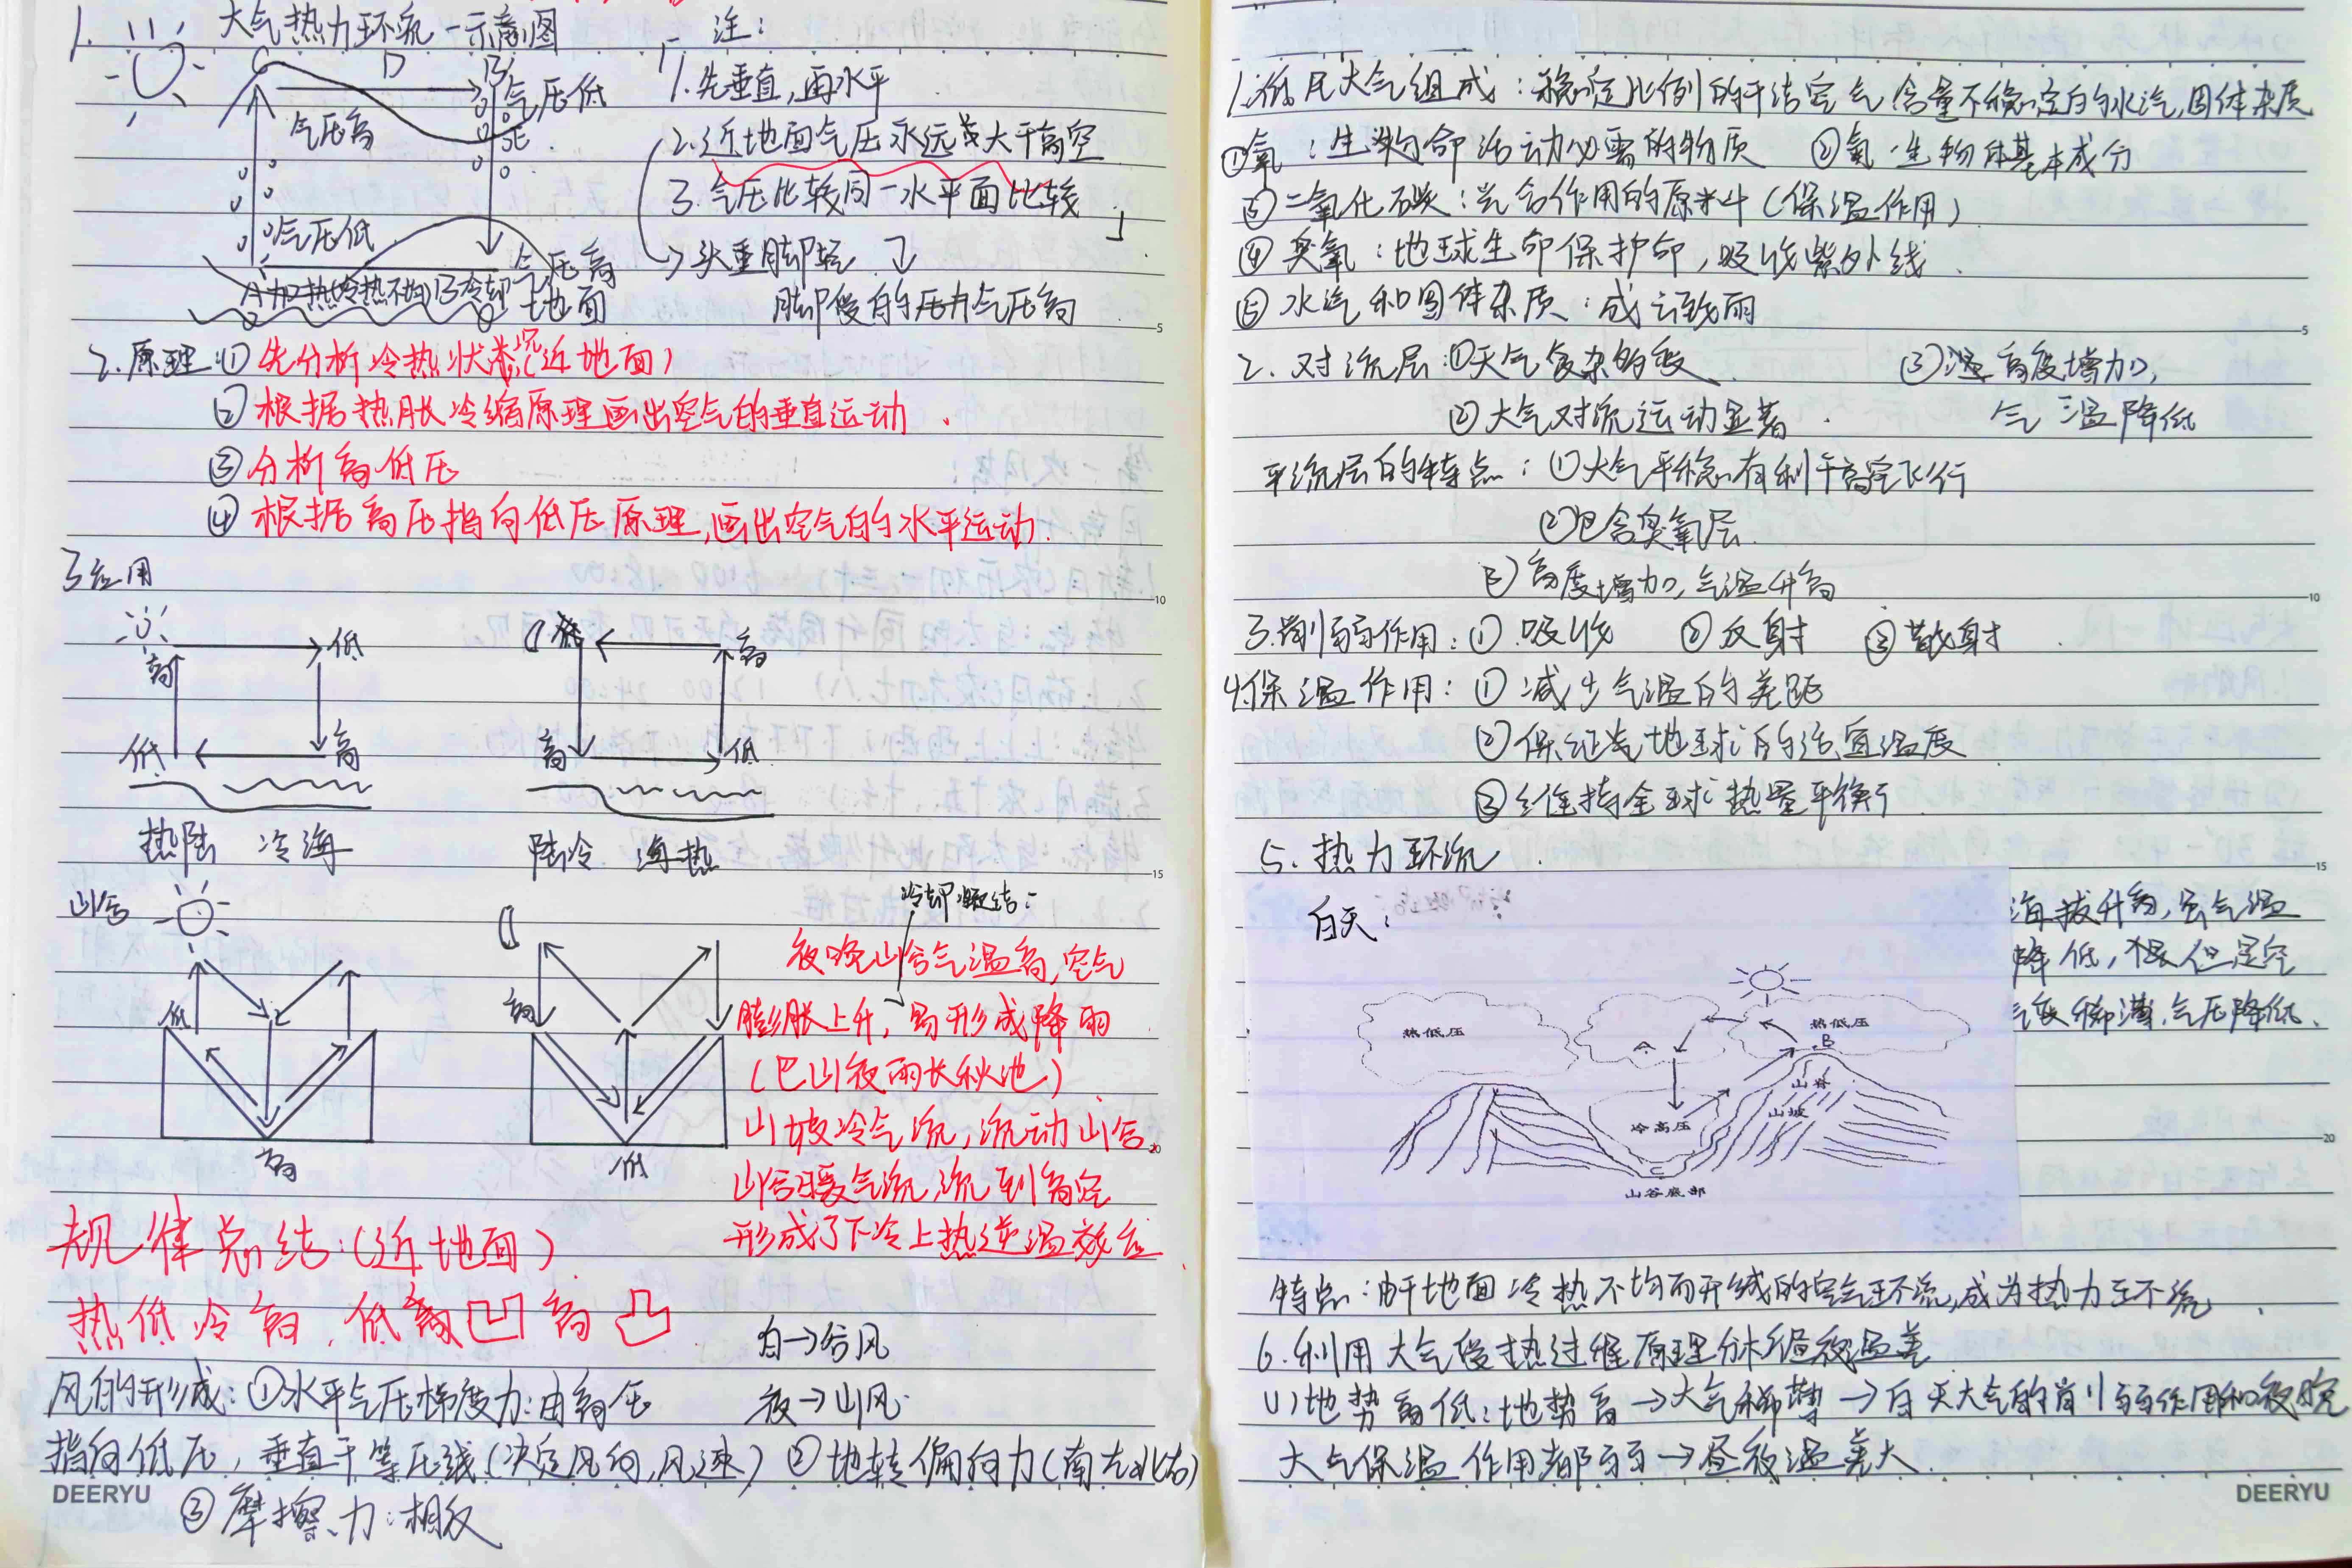 1. 大气热力环流一示意图
注：
C D B
气压低
气压高
E
气压低
气压高
A加热(冷热不均)B冷却
地面
1. 先垂直，再水平
2. 近地面气压永远大于高空
3. 气压比较同一水平面比较
头重脚轻
2. 原理 ① 先分析冷热状况(近地面)
② 根据热胀冷缩原理画出空气的垂直运动
③ 分析高低压
④ 根据高压指向低压原理，画出空气的水平运动
3 应用
高 低
低 高
热陆 冷海
高
高 低
陆冷 海热
山谷
低
高
低
冷却凝结：
夜晚山谷气温高，空气
膨胀上升，易形成降雨
(巴山夜雨长秋池)
山坡冷气流，流动山谷
山谷暖气流，流到高空
形成了下冷上热逆温效应
规律总结：(近地面)
热低冷高，低凹高凸
白→谷风
夜→山风
风的形成：①水平气压梯度力：由高压
指向低压，垂直于等压线(决定风向，风速) ② 地转偏向力(南左北右)
③ 摩擦力：相反
DEERYU
1. 低层大气组成：稳定比例的干洁空气 含量不稳定的水汽，固体杂质
①氧：生物命活动必需的物质 ②氮：生物体基本成分
③ 二氧化碳：光合作用的原料(保温作用)
④ 臭氧：地球生命保护命，吸收紫外线
⑤ 水汽和固体杂质：成云致雨
2. 对流层：①天气复杂多变 ③ 高度增加，
② 大气对流运动显著 气温降低
平流层的特点：① 大气平稳有利于高空飞行
② 包含臭氧层
③ 高度增加，气温升高
3. 削弱作用：① 吸收 ② 反射 ③ 散射
4. 保温作用：① 减少气温的差距
② 保证地球的适宜温度
③ 维持全球热量平衡
5. 热力环流
白天：
热低压
热低压
A
B
山脊
山坡
冷高压
C
山谷底部
海拔升高，气温
降低，但是空
气变稀薄，气压降低
特点：由于地面冷热不均而形成的空气环流，成为热力环流
6. 利用大气受热过程原理分析昼夜温差
(1) 地势高低：地势高→大气稀薄→白天大气的削弱作用和夜晚
大气保温作用都弱→昼夜温差大
DEERYU